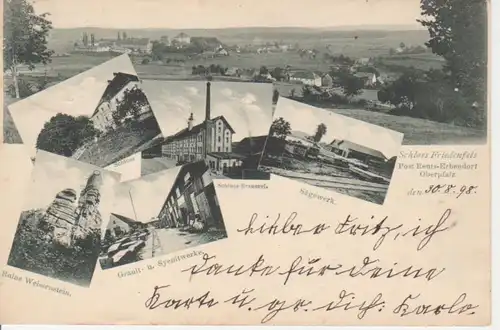 Schloss
Schloss-Brauerei.
Sägewerk.
Schloss Friedenfels
Post Reuth-Erbendorf
Oberpfalz
den 30.8.98.
Granit- u. Syenitwerke.
Ruine Weissenstein.
lieber Fritz, ich
danke für deine
Karte u. gr. dich: Karlo.